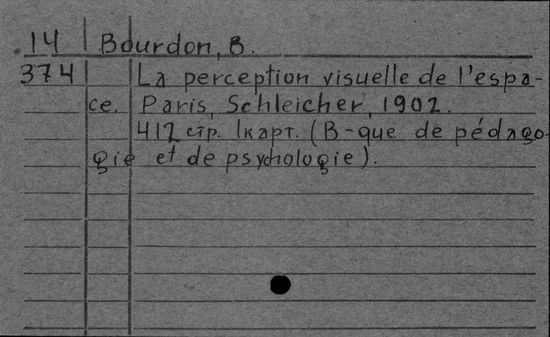 14 Bourdon, B.
374 La perception visuelle de l'espa-
ce. Paris, Schleicher, 1902.
412 стр. 1карт. (B-que de pédago-
gie et de psychologie).